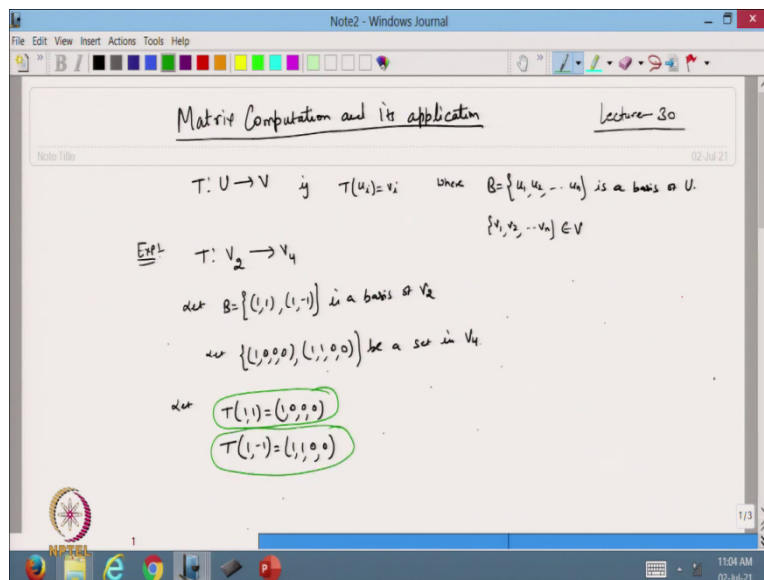 Note2 - Windows Journal
File Edit View Insert Actions Tools Help
Matrix Computation and its application
Lecture-30
Note Title
02-Jul-21
T: U → V if T(uᵢ)=vᵢ where B={u₁, u₂, -- uₙ} is a basis of U.
{v₁, v₂, -- vₙ} ∈ V
Exp1 T: V₂ → V₄
Let B={(1,1), (1,-1)} is a basis of V₂
Let {(1,0,0,0), (1,1,0,0)} be a set in V₄.
Let T(1,1)=(1,0,0,0)
T(1,-1)=(1,1,0,0)
1/3
NPTEL
1
11:04 AM
02-Jul-21